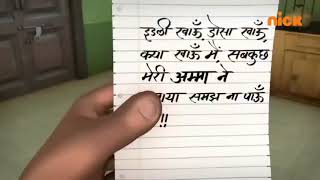 nick
इडली खाऊँ डोसा खाऊँ,
क्या खाऊँ मैं सबकुछ
मेरी अम्मा ने
समझ ना पाऊँ
!!